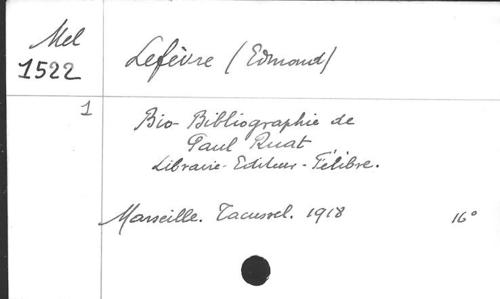 Mel
1522
Lefèvre (Edmond)
1
Bio-Bibliographie de
Paul Ruat
Libraire-Editeur-Félibre.
Marseille. Tacussel. 1918 16°